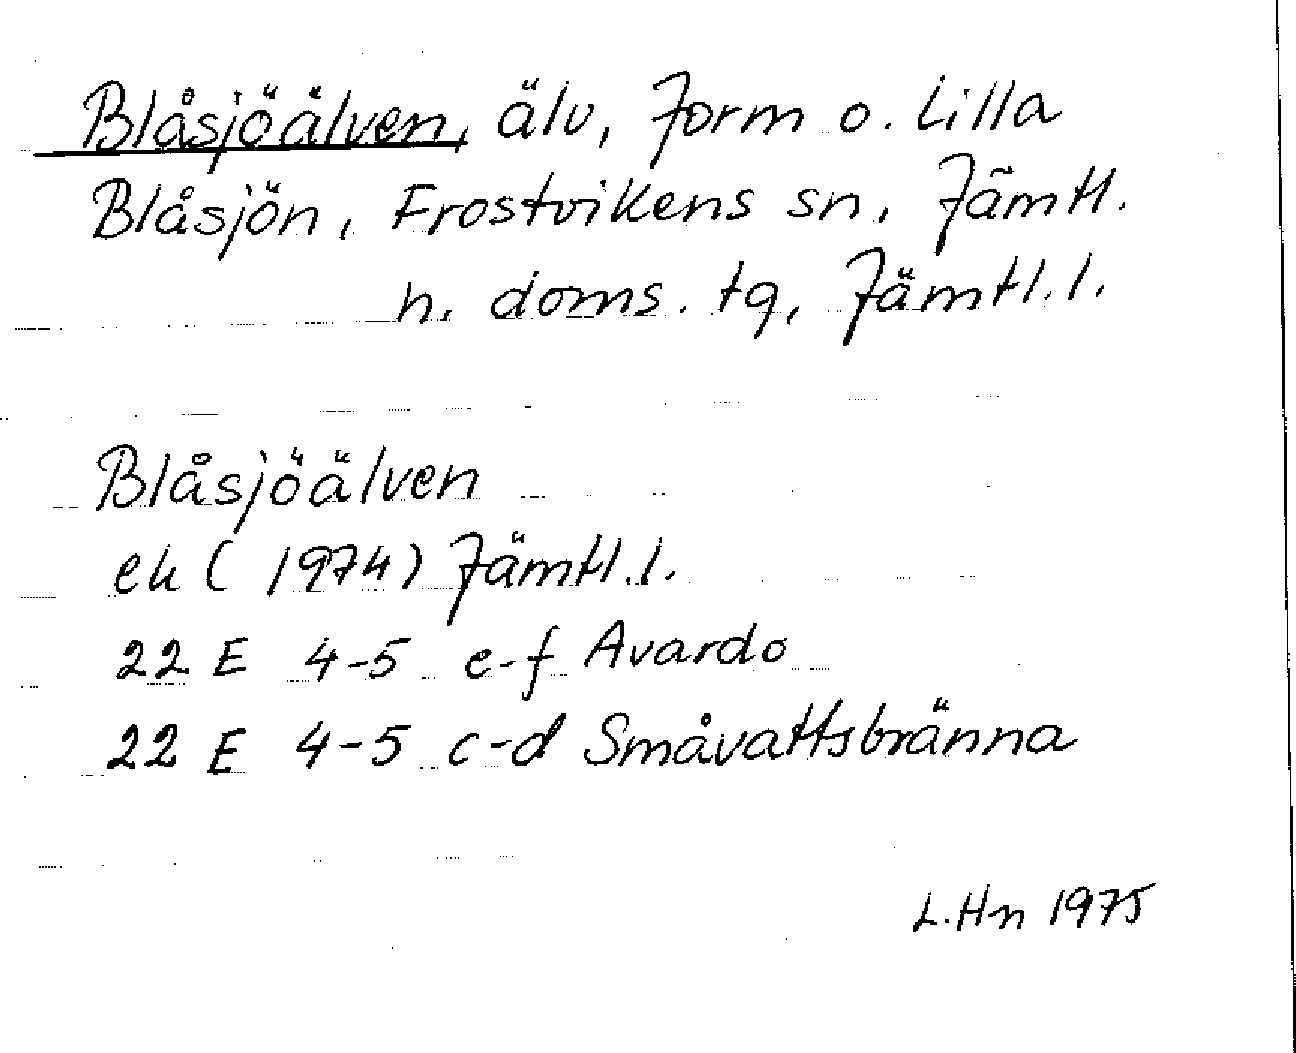 Blåsjöälven, älv, Jorm o. Lilla
Blåsjön, Frostvikens sn, Jämtl.
n. doms. tg, Jämtl.l.
Blåsjöälven
ek (1974) Jämtl.l.
22 E 4-5 e-f Avardo
22 E 4-5 c-d Småvattsbränna
L.Hn 1975